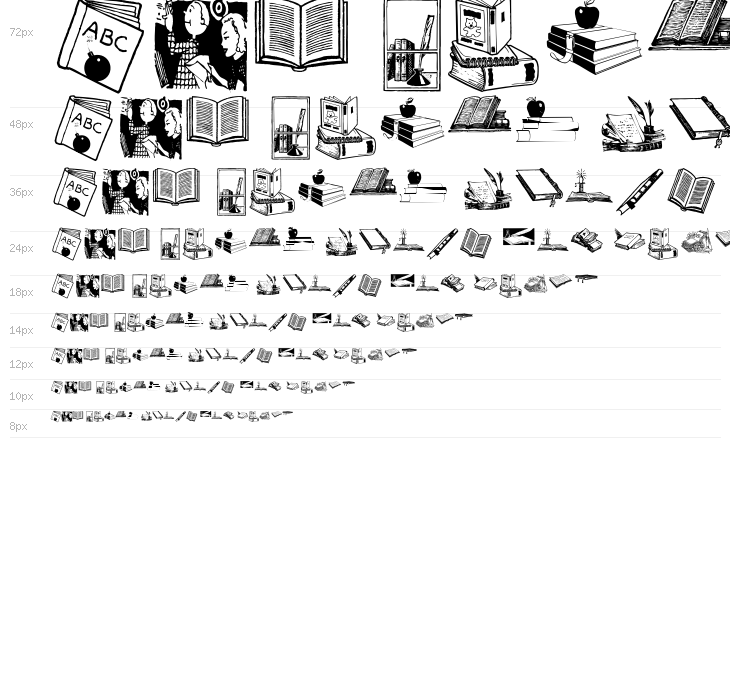 72px
ABC
48px
ABC
36px
ABC
24px
ABC
18px
14px
12px
10px
8px